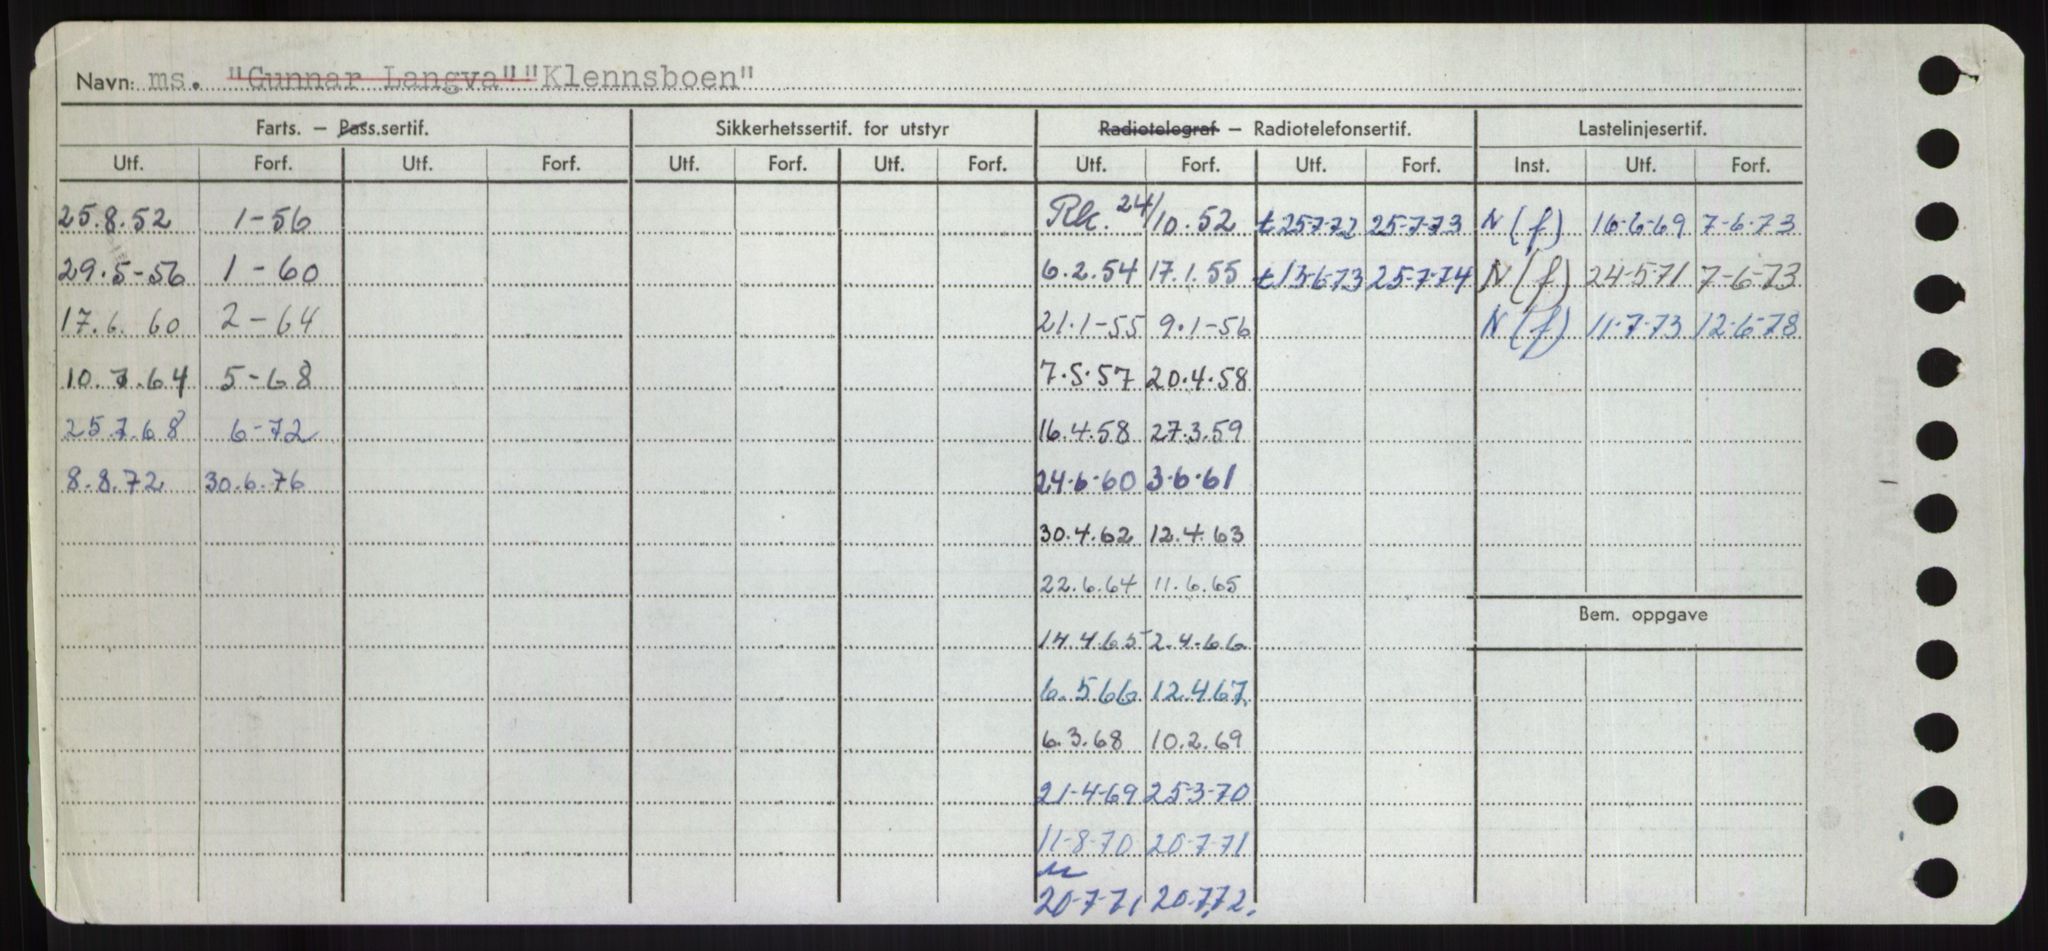 Navn: ms. "Gunnar Langva" "Klennsboen"
Farts. – Pass.sertif. Sikkerhetssertif. for utstyr Radiotelegraf – Radiotelefonsertif. Lastelinjesertif.
Utf. Forf. Utf. Forf. Utf. Forf. Utf. Forf. Utf. Forf. Utf. Forf. Inst. Utf. Forf.
25.8.52 1-56 Rk. 24/10.52 t 25-7-72 25-7-73 N(f) 16-6-69 7-6-73
29.5-56 1-60 6.2.54 17.1.55 t 13-6-73 25-7-74 N(f) 24-5-71 7-6-73
17.6.60 2-64 21.1-55 9.1-56 N(f) 11-7-73 12-6-78
10.7.64 5-68 7.5.57 20.4.58
25.7.68 6-72 16.4.58 27.3.59
8.8.72 30.6.76 24.6.60 3.6.61
30.4.62 12.4.63
22.6.64 11.6.65
Bem. oppgave
14.4.65 2.4.66
6.5.66 12.4.67
6.3.68 10.2.69
21-4-69 25-3-70
11-8-70 20-7-71
20-7-71 20.7.72.